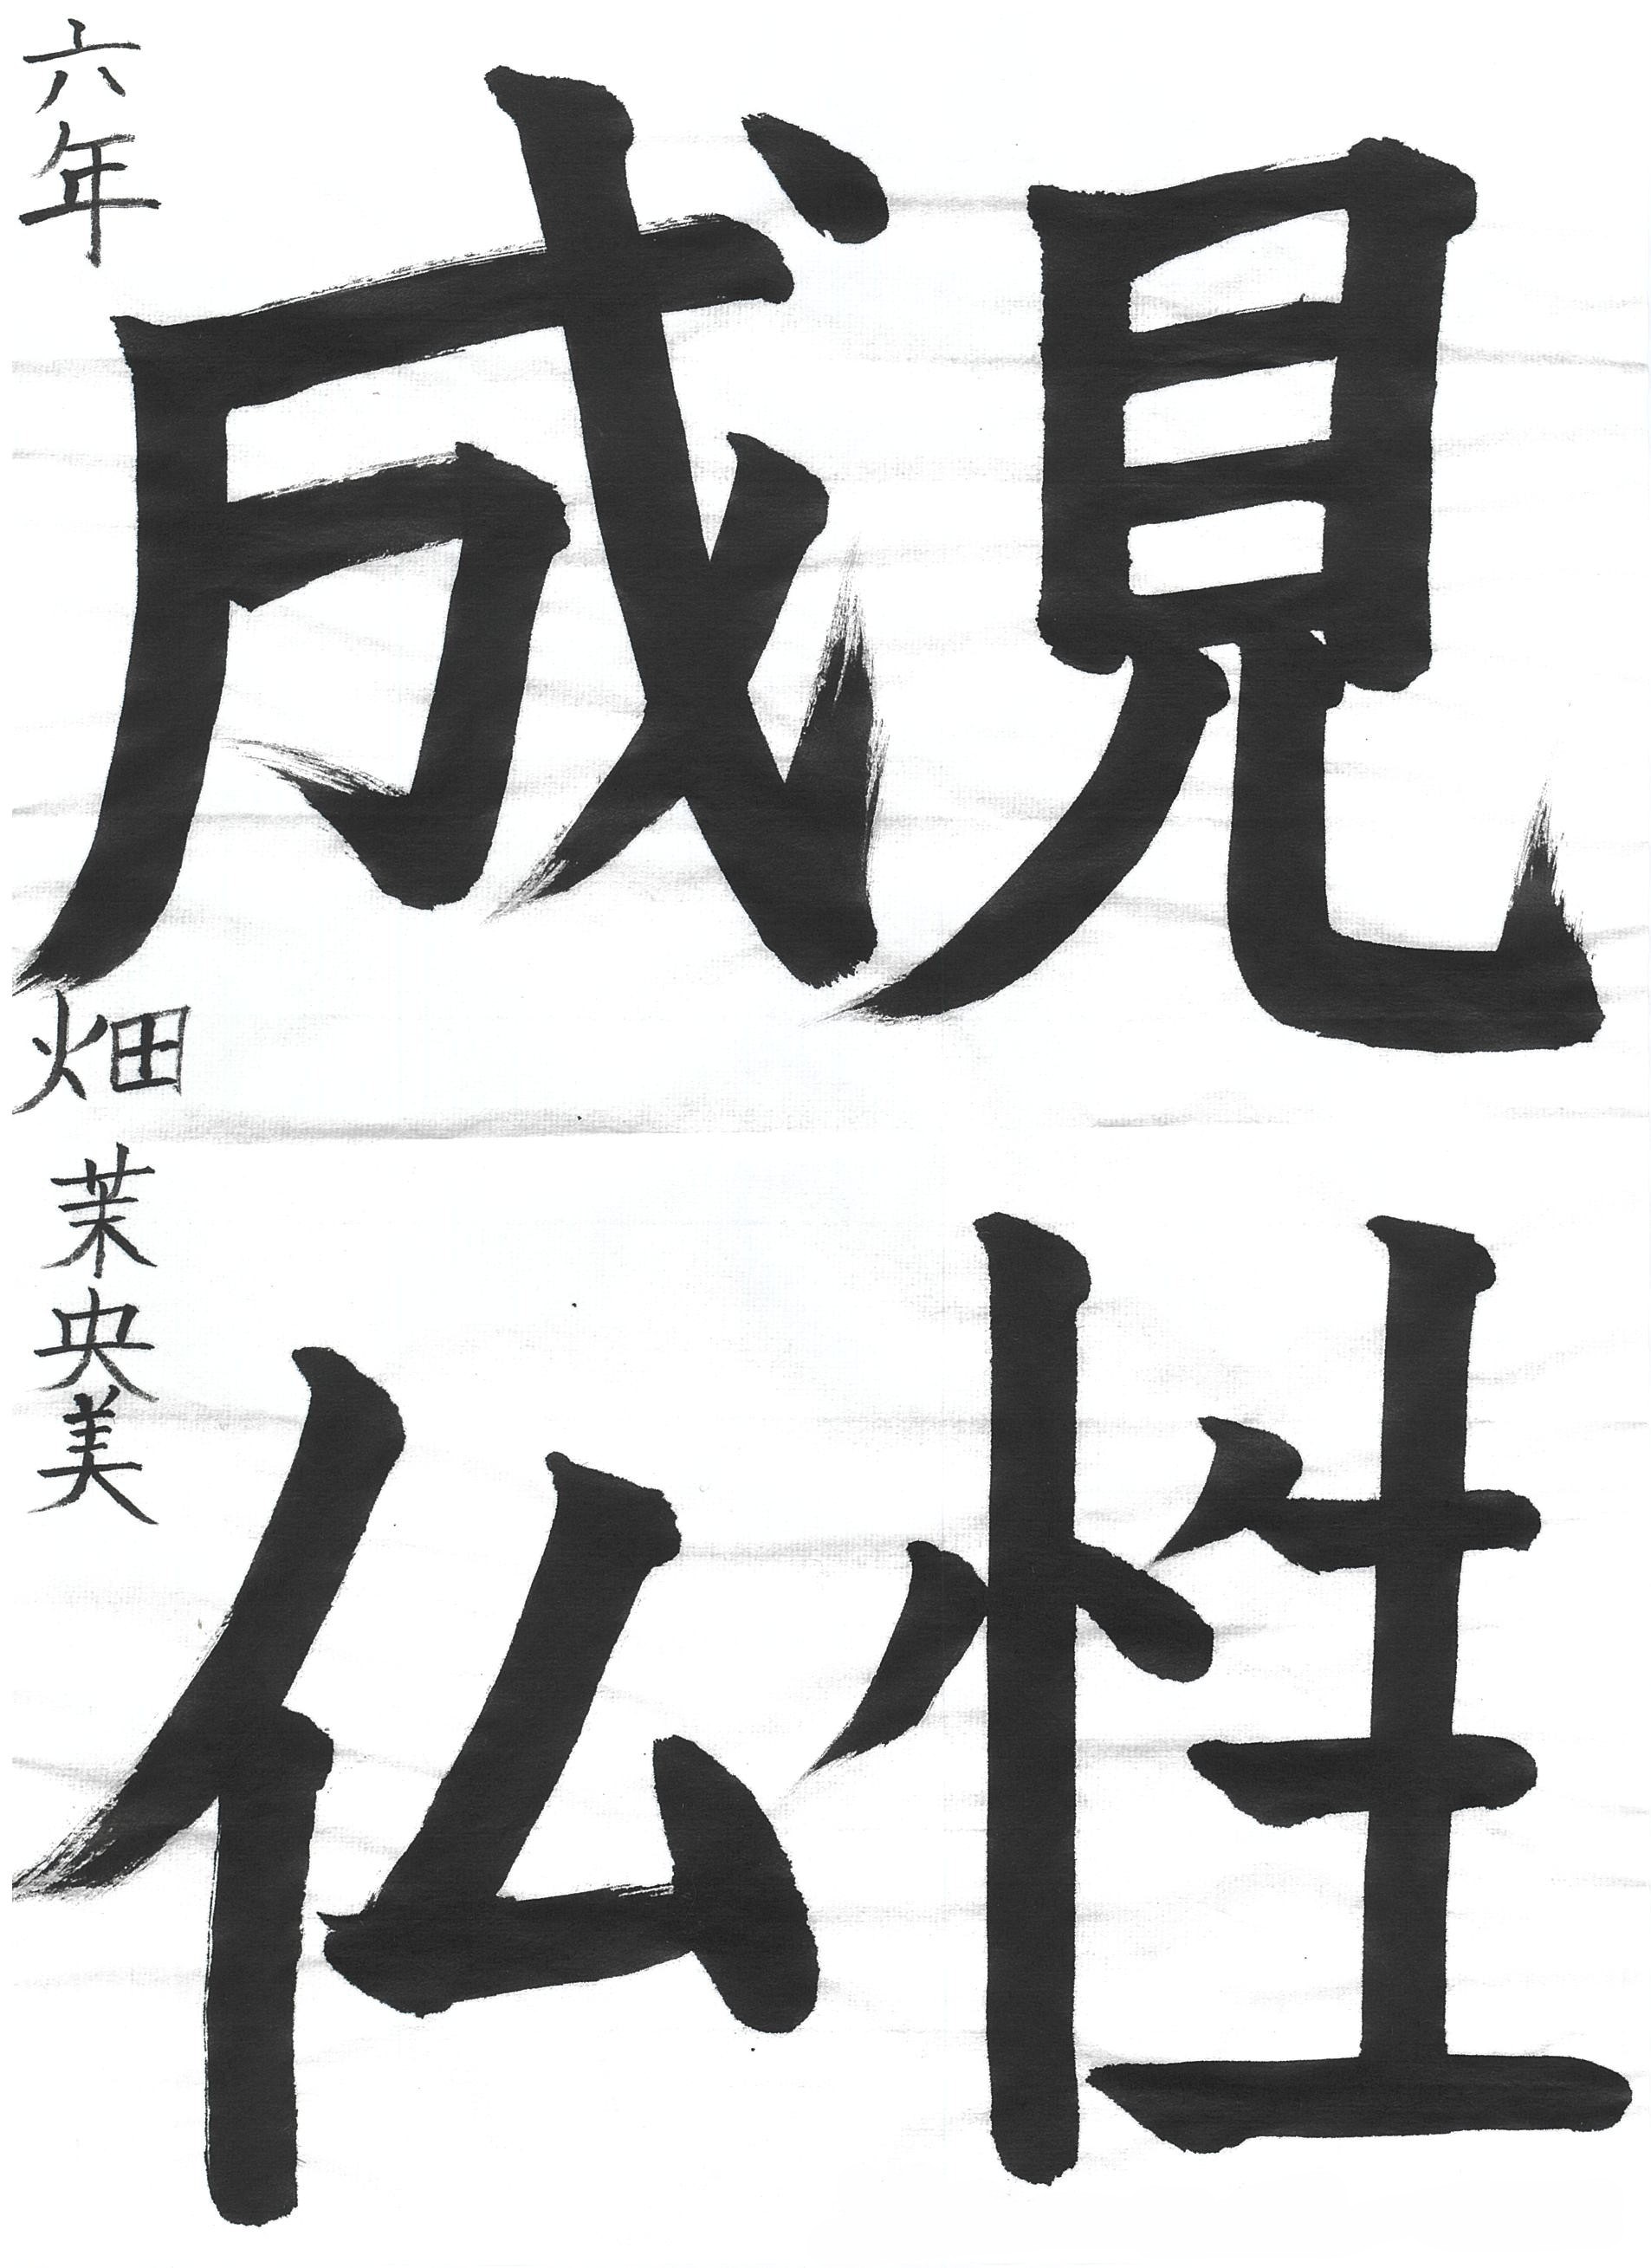 見性
成仏
六年 畑 茉央美